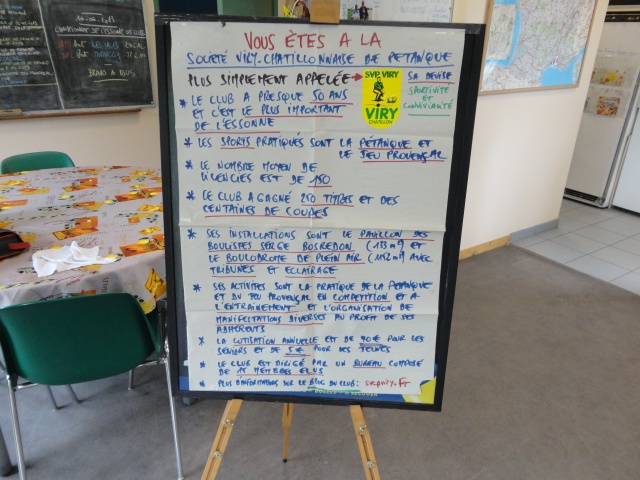 VOUS ÊTES A LA
SOCIÉTÉ VIRY-CHATILLONNAISE DE PETANQUE
PLUS SIMPLEMENT APPELÉE →
SVP VIRY
VIRY
CHATILLON
SA DEVISE
SPORTIVITE ET CONVIVIALITÉ
* LE CLUB A PRESQUE 50 ANS
ET C'EST LE PLUS IMPORTANT
DE L'ESSONNE
* LES SPORTS PRATIQUÉS SONT LA PETANQUE ET
LE JEU PROVENÇAL
* LE NOMBRE MOYEN DE
LICENCIES EST DE 150
* LE CLUB A GAGNÉ 250 TITRES ET DES
CENTAINES DE COUPES
* SES INSTALLATIONS SONT LE PAVILLON DES
BOULISTES SERGE BOSREDON (133 m²) ET
LE BOULODROME DE PLEIN AIR (1152 m²) AVEC
TRIBUNES ET ECLAIRAGE
* SES ACTIVITES SONT LA PRATIQUE DE LA PETANQUE
ET DU JEU PROVENÇAL EN COMPETITION ET A
L'ENTRAINEMENT ET L'ORGANISATION DE
MANIFESTATIONS DIVERSES AU PROFIT DE SES
ADHERENTS
* LA COTISATION ANNUELLE EST DE 90€ POUR LES
SENIORS ET DE 5€ POUR LES JEUNES
* LE CLUB EST DIRIGÉ PAR UN BUREAU COMPOSÉ
DE 15 MEMBRES ELUS
* PLUS D'INFORMATIONS SUR LE BLOG DU CLUB: svpviry.fr